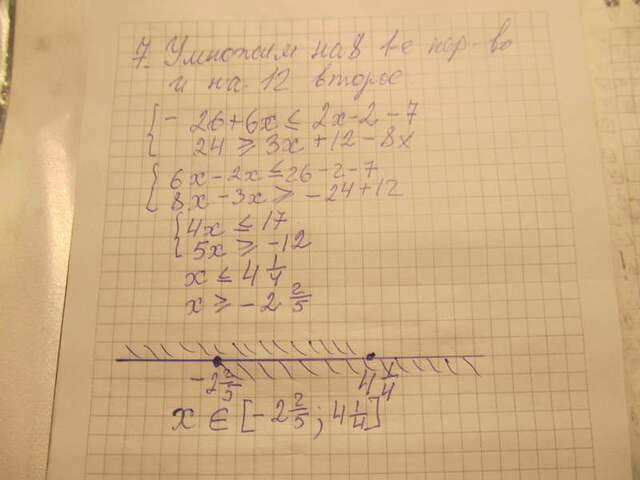 7. Умножим на 8 1-е нер-во
и на 12 второе
{ - 26+6x ≤ 2x-2-7
24 ≥ 3x+12-8x
{ 6x-2x ≤ 26-2-7
8x-3x ≥ -24+12
{ 4x ≤ 17
5x ≥ -12
x ≤ 4 1/4
x ≥ -2 2/5
-2 2/5 4 1/4
x ∈ [-2 2/5; 4 1/4]